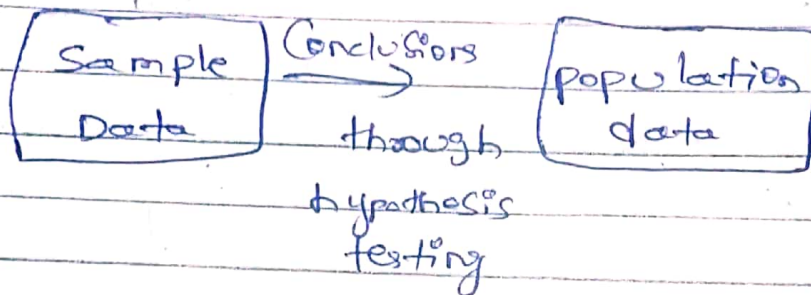 Sample
Data
Conclusions
through
hypothesis
testing
population
data